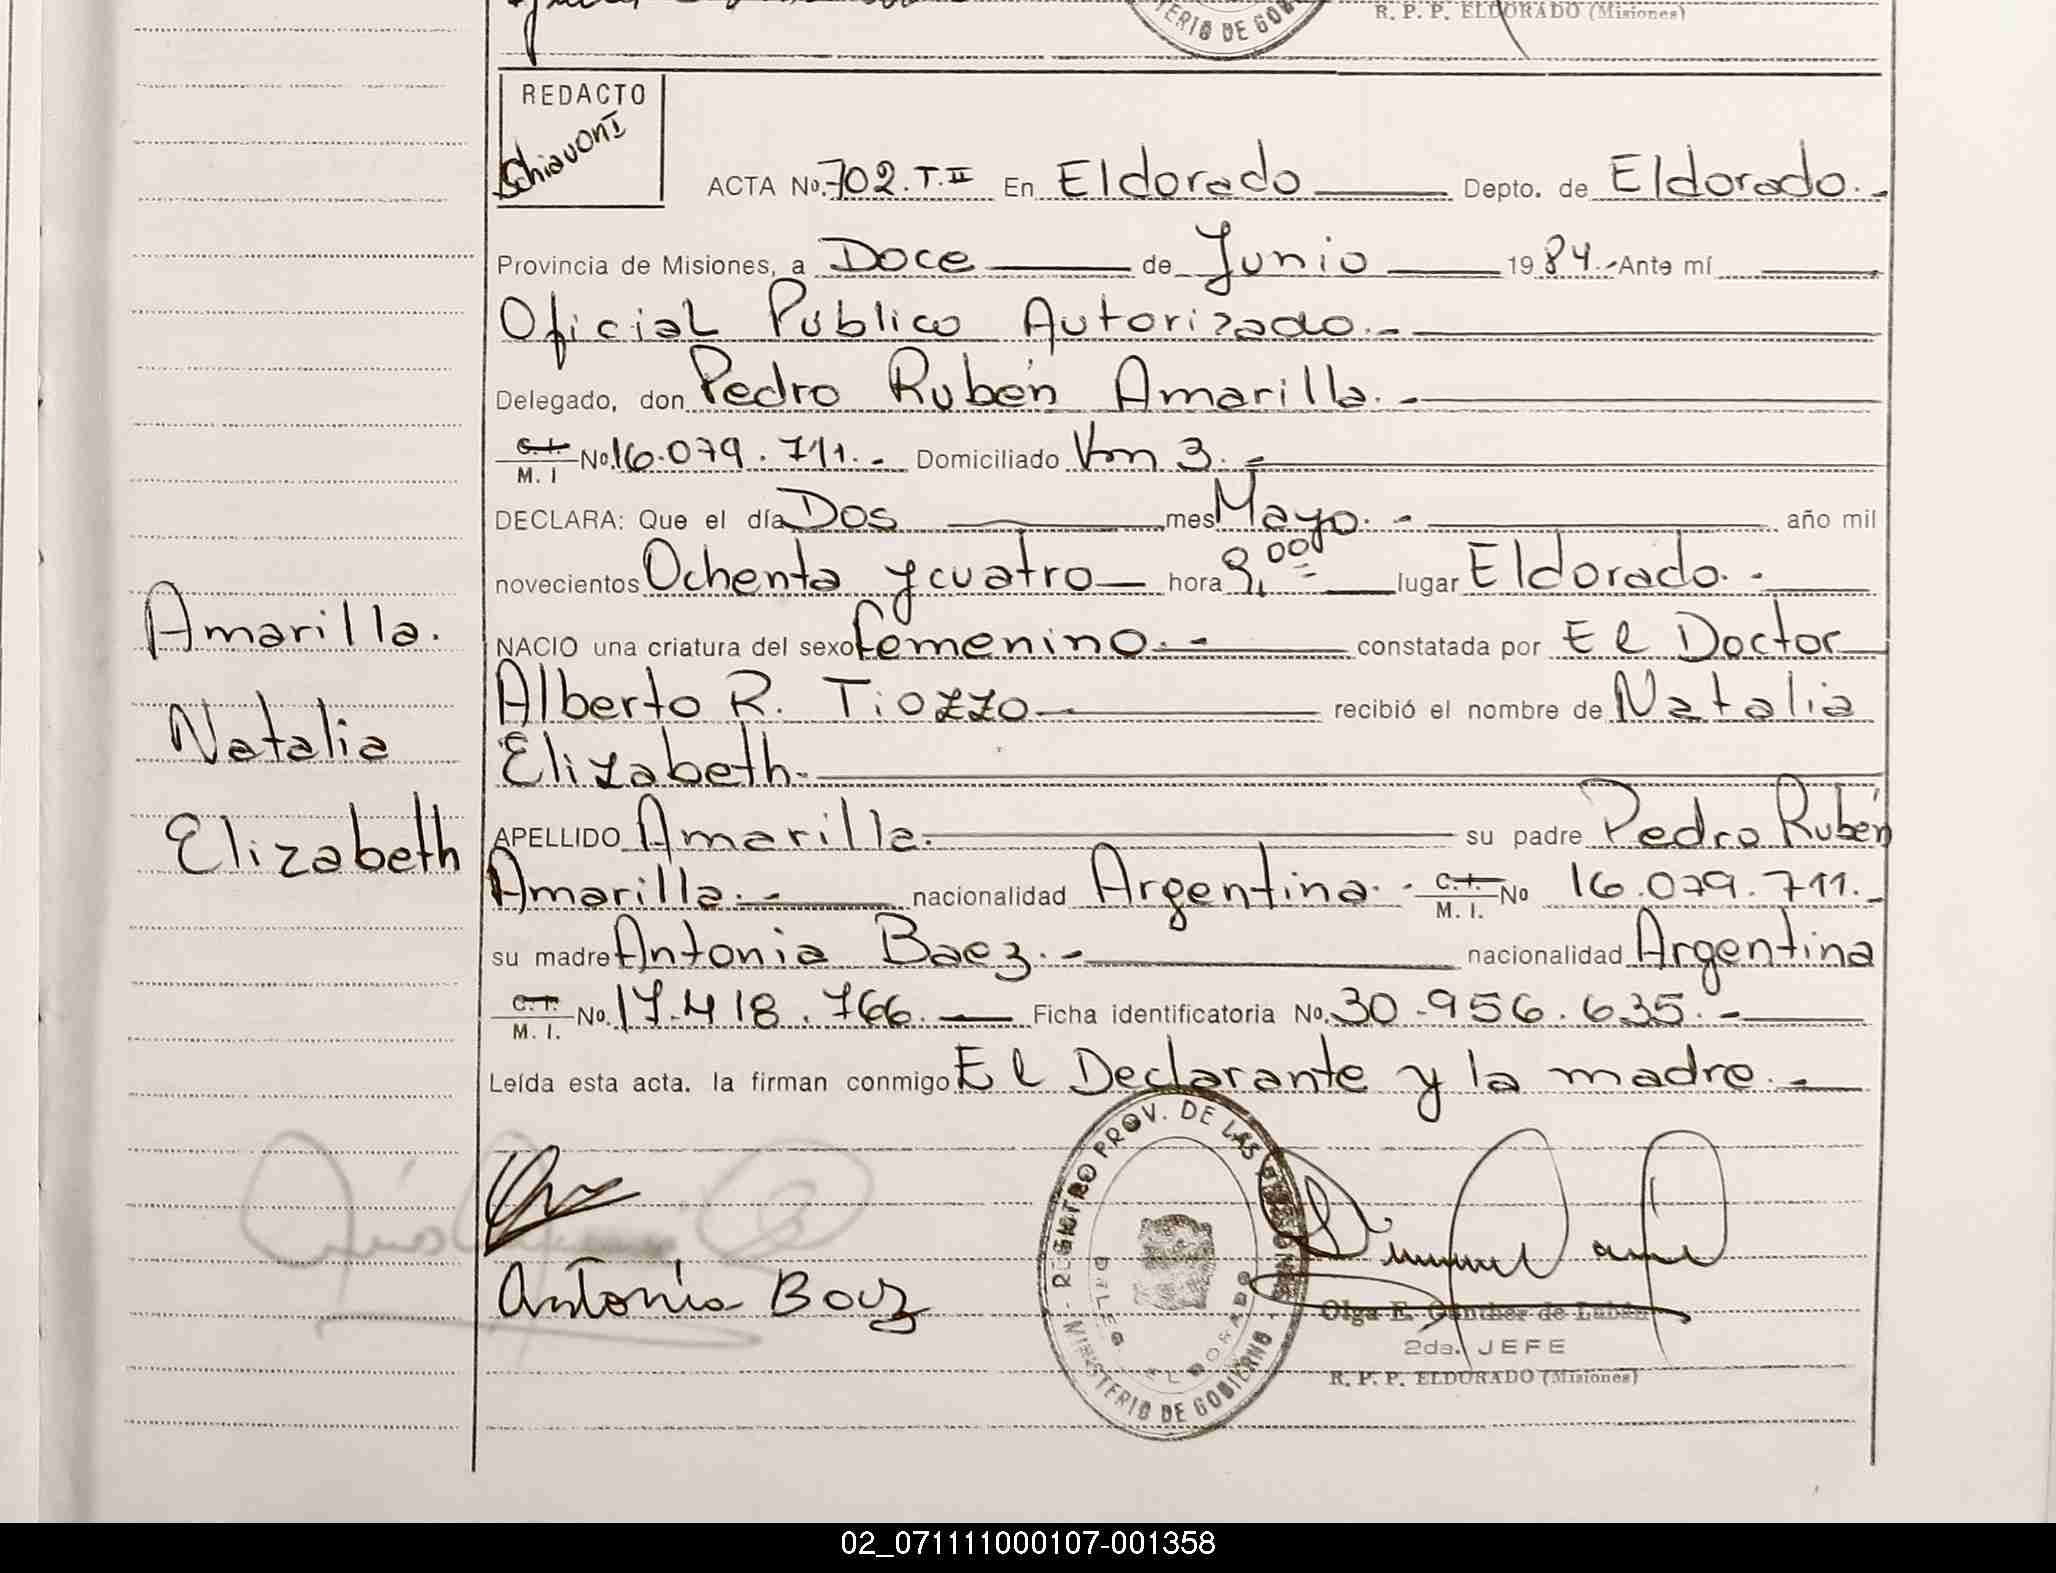 R. P. P. ELDORADO (Misiones)
TERIO DE GOB
REDACTO
Schiavoni
ACTA No. 702. T. II En Eldorado Depto. de Eldorado.-
Provincia de Misiones, a Doce de Junio 1984.- Ante mí
Oficial Publico Autorizado.-
Delegado, don Pedro Rubén Amarilla.-
C. I. / M. I No. 16.079.711.- Domiciliado Km 3.-
DECLARA: Que el día Dos mes Mayo.- año mil
novecientos Ochenta y cuatro hora 9,00 lugar Eldorado.-
NACIO una criatura del sexo femenino.- constatada por El Doctor
Alberto R. Tiozzo recibió el nombre de Natalia
Elizabeth.-
APELLIDO Amarilla.- su padre Pedro Rubén
Amarilla.- nacionalidad Argentina.- C. I. / M. I. No 16.079.711.-
su madre Antonia Baez.- nacionalidad Argentina
C. I. / M. I. No. 17.418.766.- Ficha identificatoria No. 30.956.635.-
Leída esta acta. la firman conmigo El Declarante y la madre.-
Amarilla.
Natalia
Elizabeth
Antonia Baez
REGISTRO PROV. DE LAS PERSONAS
MINISTERIO DE GOBIERNO
ELDORADO
Olga E. Günther de Labán
2da. JEFE
R. P. P. ELDORADO (Misiones)
02_071111000107-001358